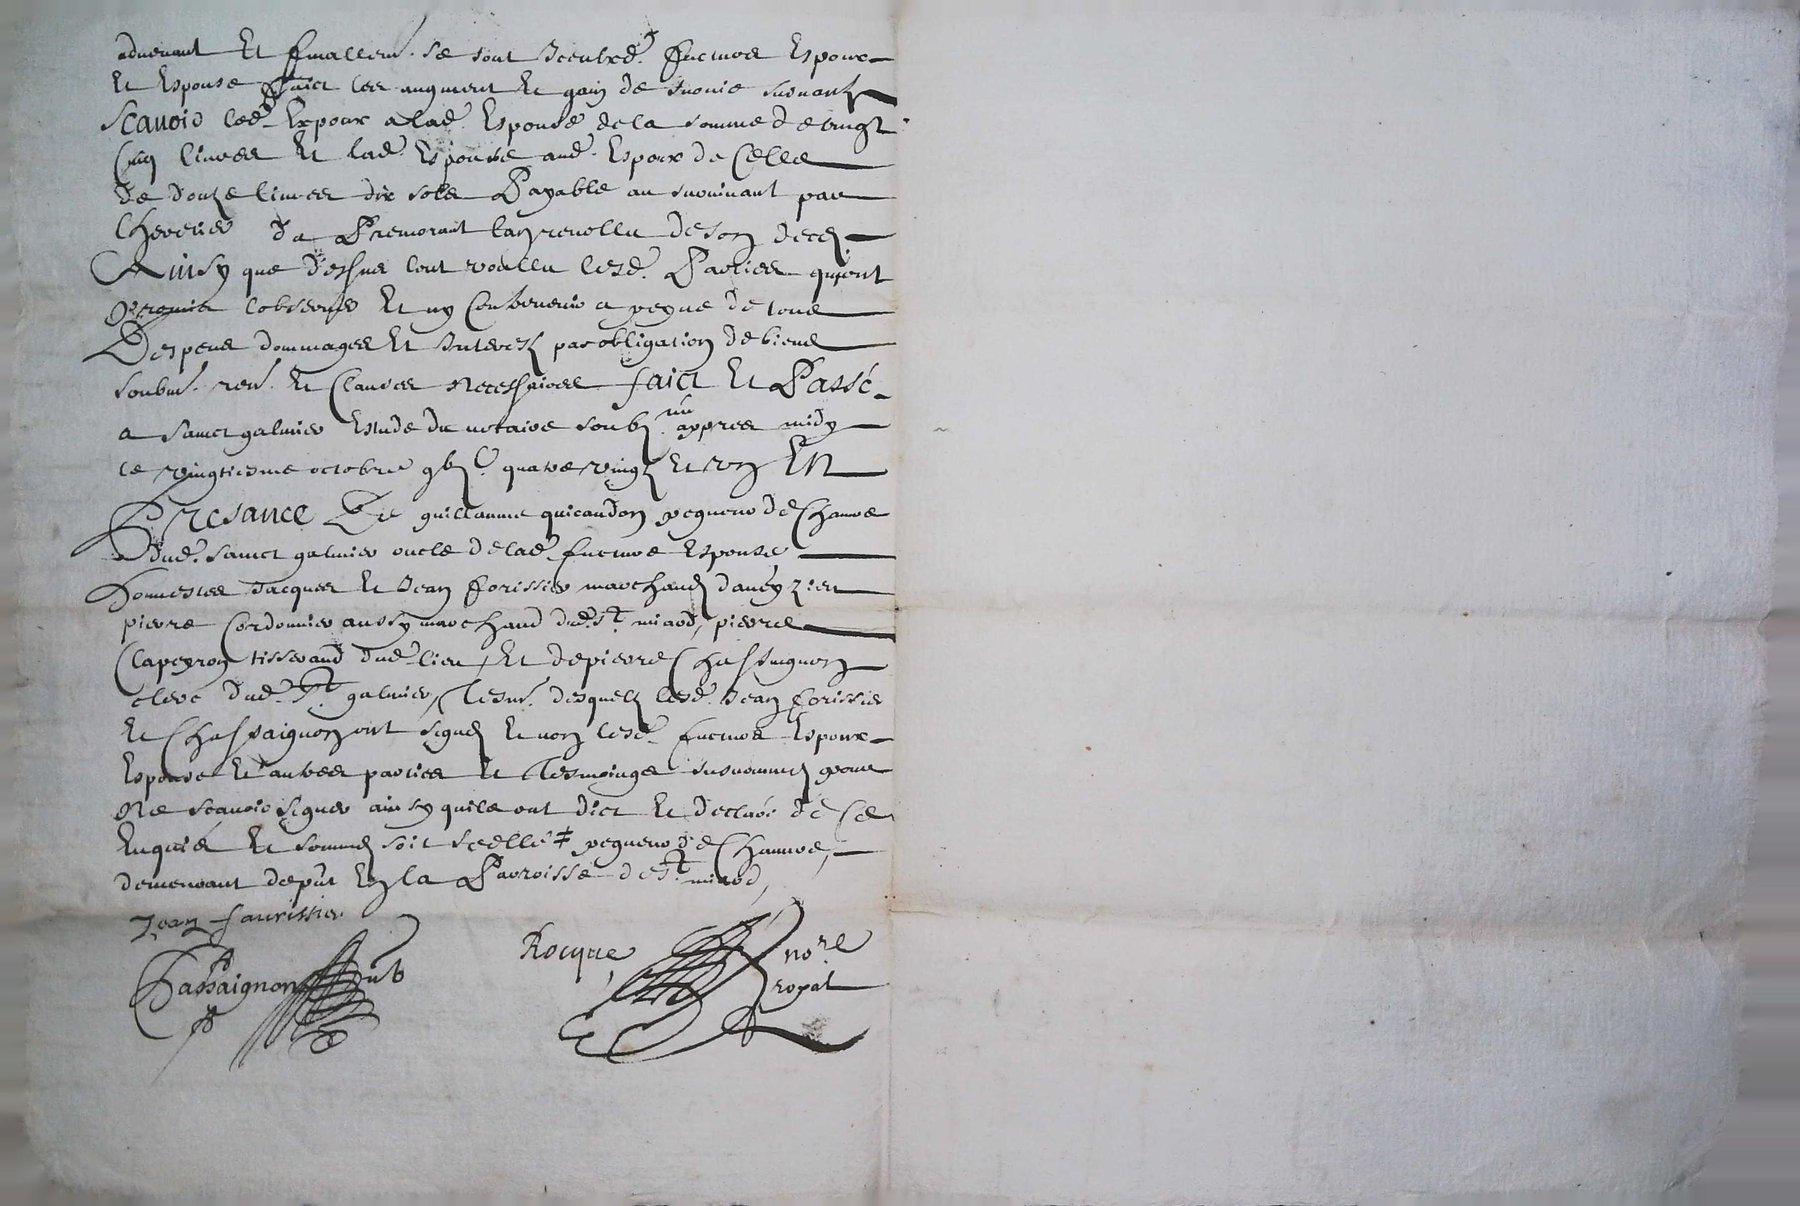 advenant Et finallem. se sont lesd. futurs Espoux
Et Espouse faict les augment Et gain de survie suivantz
Scavoir led. Expoux a lad. Espouse de la somme de vingt
Cinq livres Et lad. Espouse aud. Espoux de Celle
de douze livres dix solz Payable au survivant par
l'heretier du Premorant de son deces
Ainsy que dessus l'ont voullu lesd. Parties qui ont
Promis l'observer Et ny Contrevenir a peyne de tous
Despens dommages Et Interestz par obligation de biens
soubm. ren. Et Clauses Necessaires faict Et Passé
a sainct galmier Estude du notaire soubz.né appres midy
le vingtiesme octobre quatre vingtz Et un EN
PResance De guillaume quicaudon pegneur de Chanvre
dud. sainct galmier oncle de lad. future Espouse
honnestes Jacques Et Jean forissier marchandz daveyzieu
pierre Cordonnier aussy marchand dud. St. miard, pierre
Clapeyron tisserand dud. lieu, Et de pierre Chassaignon
clerc dud. St. galmier, Tesm. desquelz lesd. Jean forissier
Et Chassaignon ont signez Et non lesd. futurs Espoux
Espouse Et autres parties Et Tesmoings susnommez pour
Ne scavoir signer ainsy quils ont dict Et declaré de Ce
Enquis Et sommez soit scellé ‡ pegneur de Chanvre,
demeurant depnt En la Parroisse de St. miard,
Jean faurissier
Chassaignon
Rocque
no.re
royal